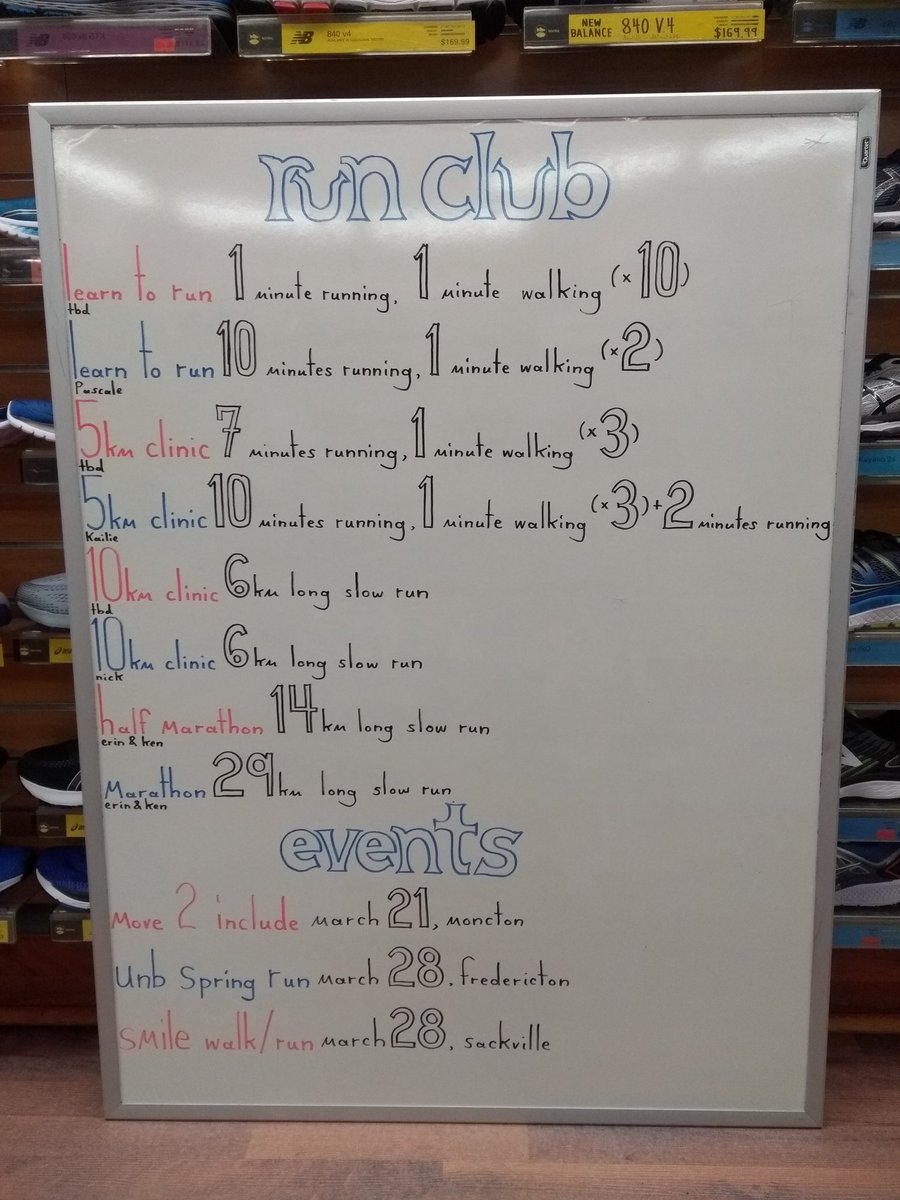 840 v4
$169.99
NEW BALANCE 840 V.4
$169.99
Quartet
run club
learn to run 1 minute running, 1 minute walking (x10)
tbd
learn to run 10 minutes running, 1 minute walking (x2)
Pascale
5km clinic 7 minutes running, 1 minute walking (x3)
tbd
5km clinic 10 minutes running, 1 minute walking (x3)+2 minutes running
Kailie
10km clinic 6km long slow run
tbd
10km clinic 6km long slow run
nick
half marathon 14km long slow run
erin & ken
Marathon 29km long slow run
erin & ken
events
Move 2 include march 21, moncton
unb Spring run march 28, fredericton
smile walk/run march 28, sackville